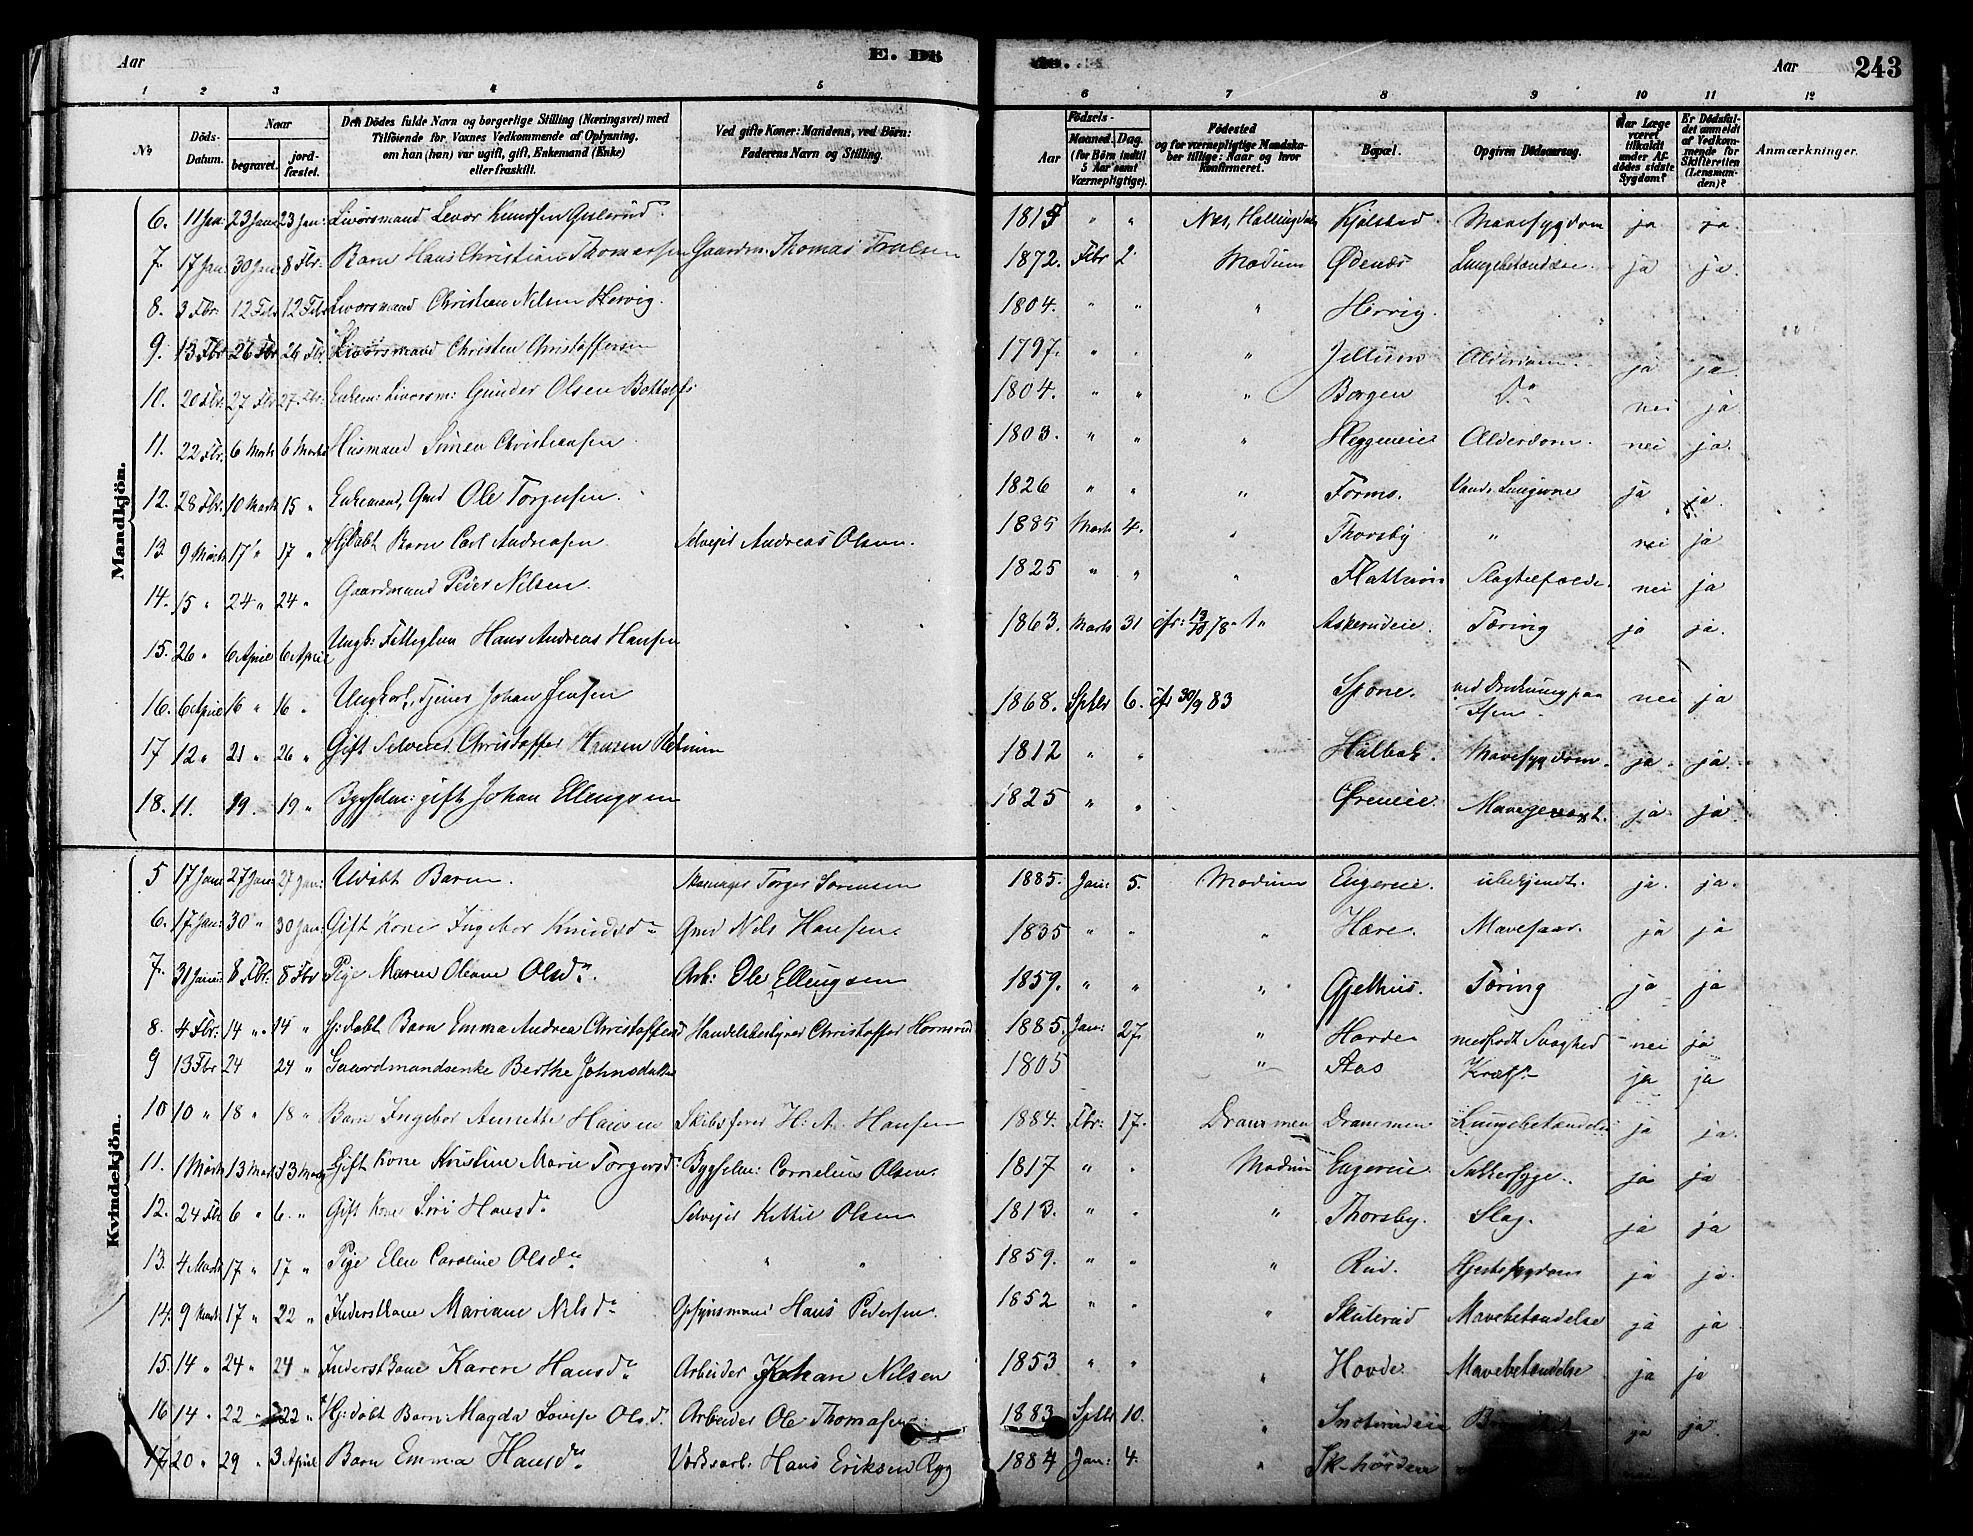 Aar E. Dö de. Aar 243
1 2 3 4 5 6 7 8 9 10 11 12
No. Döds-Datum. Naar begravet. jordfæstet. Den Dödes fulde Navn og borgerlige Stilling (Næringsvei) med Tilföiende for Voxnes Vedkommende af Oplysning, om han (hun) var ugift, gift, Enkemand (Enke) eller fraskilt. Ved gifte Koner: Mandens, ved Börn: Faderens Navn og Stilling. Födsels- Aar Maaned. Dag. (for Börn indtil 5 Aar samt Værnepligtige). Födested og for værnepligtige Mandskaber tillige: Naar og hvor Konfirmeret. Bopæl. Opgiven Dödsaarsag. Har Læge været tilkaldt under Afdödes sidste Sygdom? Er Dödsfaldet anmeldt af Vedkommende for Skifteretten (Lensmanden)? Anmærkninger.
Mandkjön.
6. 11 Jan: 23 Jan: 23 Jan: Livörsmand Levor Knudsen Gulsrud 1815 " " Nes, Hallingdal Kjölstad Mavesygdom ja ja.
7. 17 Jan: 30 Jan: 8 Fbr. Barn Hans Christian Thomassen Gaardm. Thomas Trulsen 1872. Febr 2. Modum Ödenæs Lungebetændelse ja ja.
8. 3 Fbr. 12 Febr 12 Febr Livörsmand Christian Nilsen Hervig. 1804. " " " Hervig.
9. 13 Fbr 26 Fbr 26 Fbr. Livörsmand Christen Christoffersen 1797. " " " Jellum Alderdom. ja ja.
10. 20 Fbr. 27 Fbr 27. Fbr. Enkem: Livörsm: Gunder Olsen 1804. " " " Borgen Do nei ja.
11. 22 Fbr. 6 Marts 6 Marts Husmand Simen Christiansen. 1803. " " " Heggeneie Alderdom. nei ja.
12. 28 Fbr. 10 Marts 15 " Enkemand, Gmd Ole Torgersen. 1826 " " " Formo. ja ja.
13. 9 Marts 17 " 17 " Hj: döbt Barn Carl Andreasen. Selveier Andreas Olsen. 1885 Marts 4. " Thorsby " nei ja
14. 15 " 24 " 24 " Gaardmand Peder Nilsen. 1825 " " " Slagtilfælde nei ja
15. 26 " 6 April 6 April Ungk: Fattiglem Hans Andreas Hansen 1863. Marts 31 Askerudeie. Tæring ja ja.
16. 6 April 16 " 16 " Ungkarl, Tjener Johan Jensen 1868. Septbr 6. cfr 30/9 83 Spone. ved Drukning paa Isen nei ja
17 12 " 21 " 26 " Gift Selveier Christoffer Hansen 1812 " " Hulbak. Mavesygdom. ja ja.
18. 11. 19. 19 " Bygselm: gift Johan Ellingsen 1825 " " Öreneie. ja ja.
Kvindekjön.
5 17 Jan: 27 Jan: 27 Jan: Udöbt Barn. Skomager Torger Sörensen 1885. Jan: 5. Modum Engereie. ubekjendt. ja. ja.
6. 17 Jan: 30 " 30 Jan: Gift Kone Ingebor Knudsd. Gmd Nils Hansen. 1835 " " " Hære. Mavesaar. ja ja
7. 31 Januar 8 Fbr: 8 Fbr Pige Maren Oleane Olsd. Arb: Ole Ellingsen 1859. " " " Gjethus. Tæring ja ja
8. 4 Fbr: 14 " 14 " Hj: döbt Barn Emma Andrea Christoffersd Handelsbestyrer Christoffer Hornsrud 1885. Jan: 27. " Hovde medfödt Svaghed nei ja
9 13 Fbr 24 24 " Gaardmandsenke Berthe Johnsdatter 1805 " Aas Kræft. ja ja
10 10 " 18 " 18 " Barn Ingebor Annette Hansen Skibsförer H. A. Hansen 1884. Fbr: 17. Drammen Drammen Lungebetændelse ja ja.
11. 1 Marts 13 Marts 13 Marts Gift Kone Kristine Marie Torgersd: Bygselm: Cornelius Olsen. 1817 " " Modum Engereie. Sukkersyge. ja ja
12. 24 Fbr 6 " 6. " Gift Kone Siri Hansd. Selveier Kittil Olsen 1813. " " " Thorsby. Slag. ja ja
13. 4 Marts 17 " 17 " Pige Elen Caroline Olsd. " " 1859. " " " Rud. Hjertesygdom ja ja.
14. 9 Marts 17 " 22 " Inderstkone Mariane Nilsd. Opsynsmand Hans Pedersen. 1852 " " " Skuterud Mavebetændelse ja ja.
15. 14 " 24 " 24 " Inderstkone Karen Hansd. Arbeider Johan Nilsen 1853 " " " Hovde. Mavebetændelse ja ja
16 14 " 22 " 22 " Hj: döbt Barn: Magda Lovise Olsd. Arbeider Ole Thomasen. 1883 Septbr 10. " ja ja.
17 20 " 29 " 3 April Barn Emma Hansd. Værksarb: Hans Eriksen Ryg 1884 Jan: 4. "